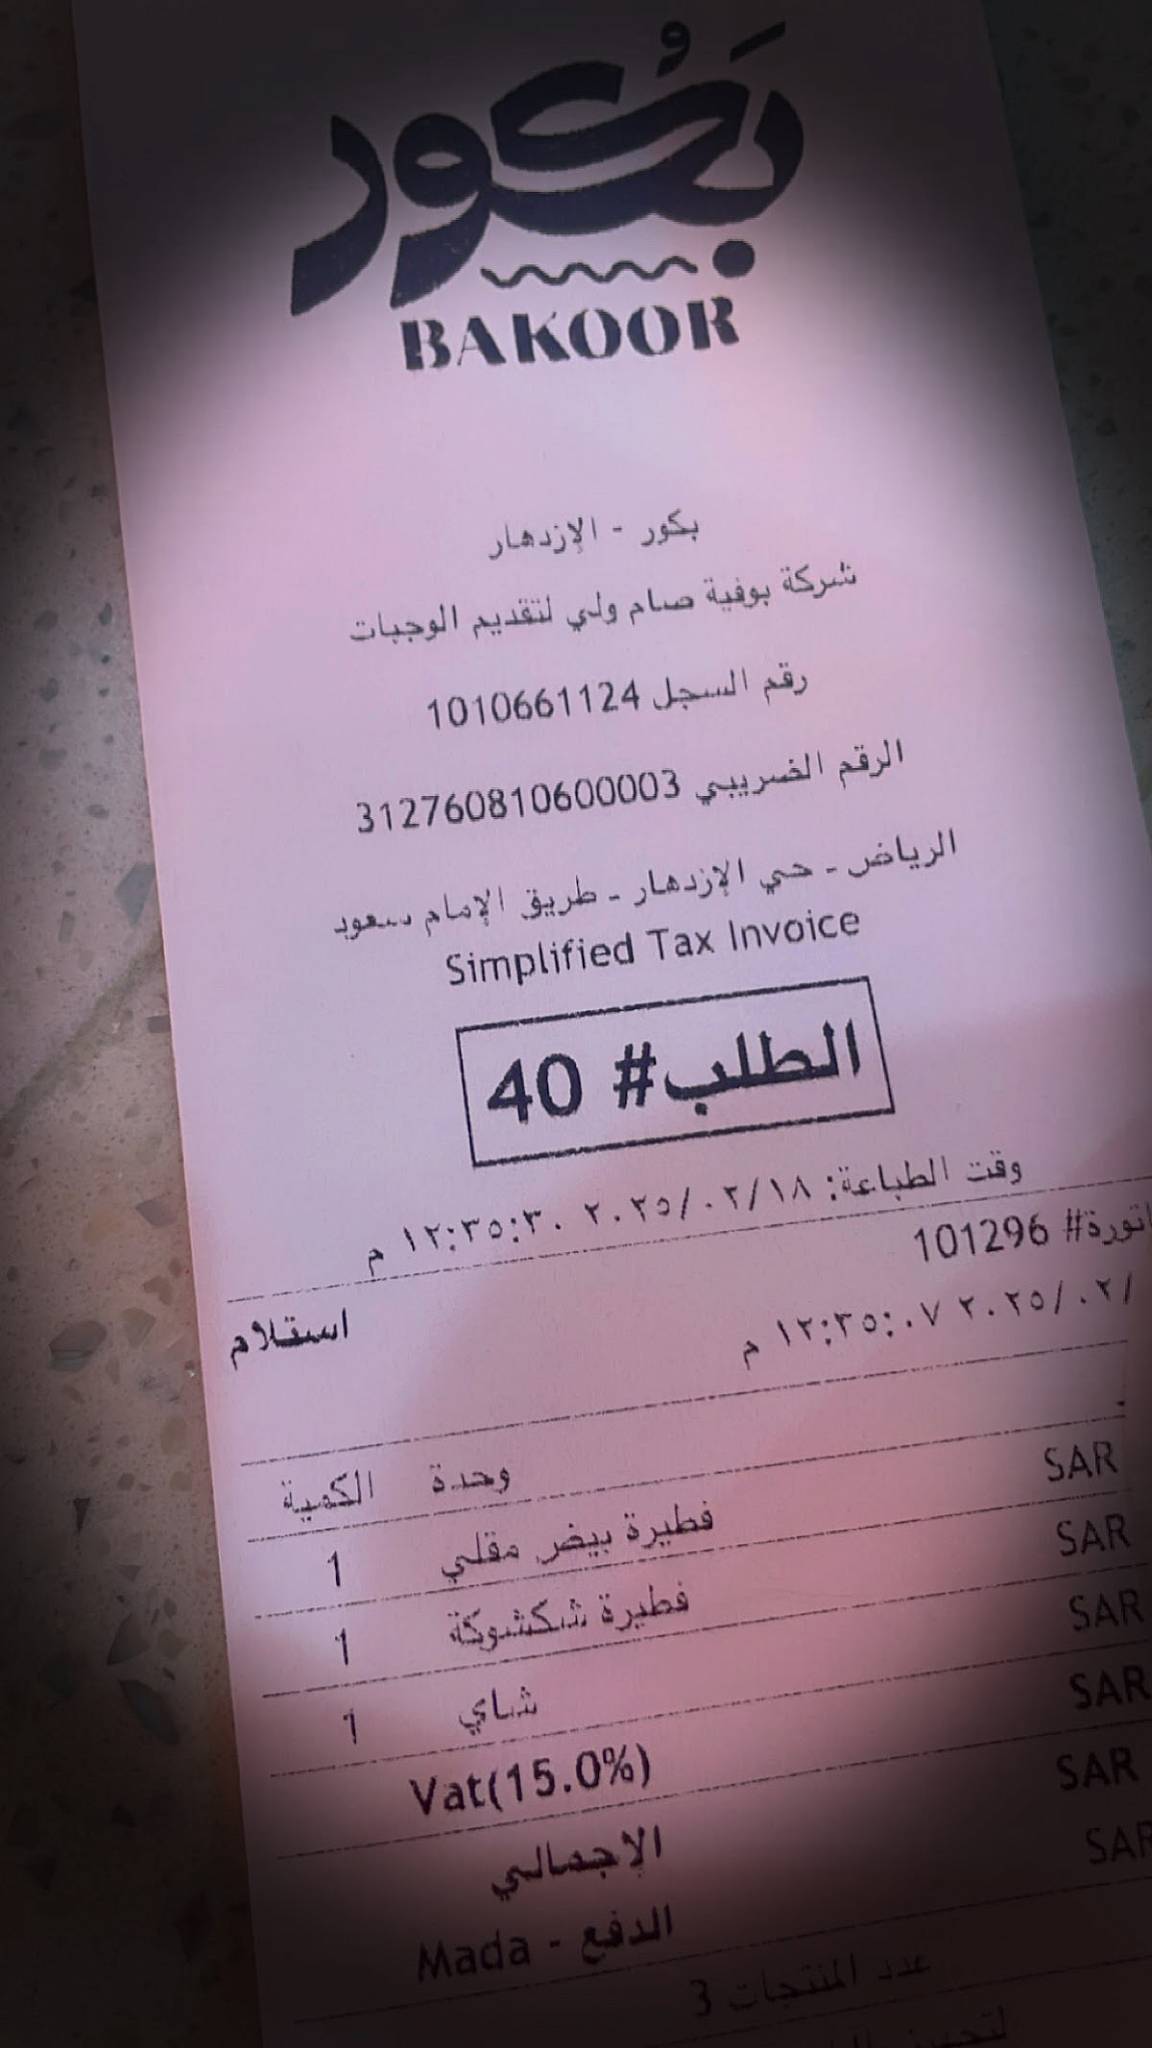 بكور
BAKOOR
بكور - الإزدهار
شركة بوفية صام ولي لتقديم الوجبات
رقم السجل 1010661124
الرقم الضريبي 312760810600003
الرياض - حي الإزدهار - طريق الإمام سعود
Simplified Tax Invoice
الطلب# 40
وقت الطباعة: ٢٠٢٥/٠٢/١٨ ١٢:٣٥:٣٠ م
اتورة# 101296
استلام
٢٠٢٥/٠٢/ ١٢:٣٥:٠٧ م
الكمية وحدة SAR
1 فطيرة بيض مقلي SAR
1 فطيرة شكشوكة SAR
1 شاي SAR
Vat(15.0%) SAR
الإجمالي SAR
الدفع - Mada
عدد المنتجات 3